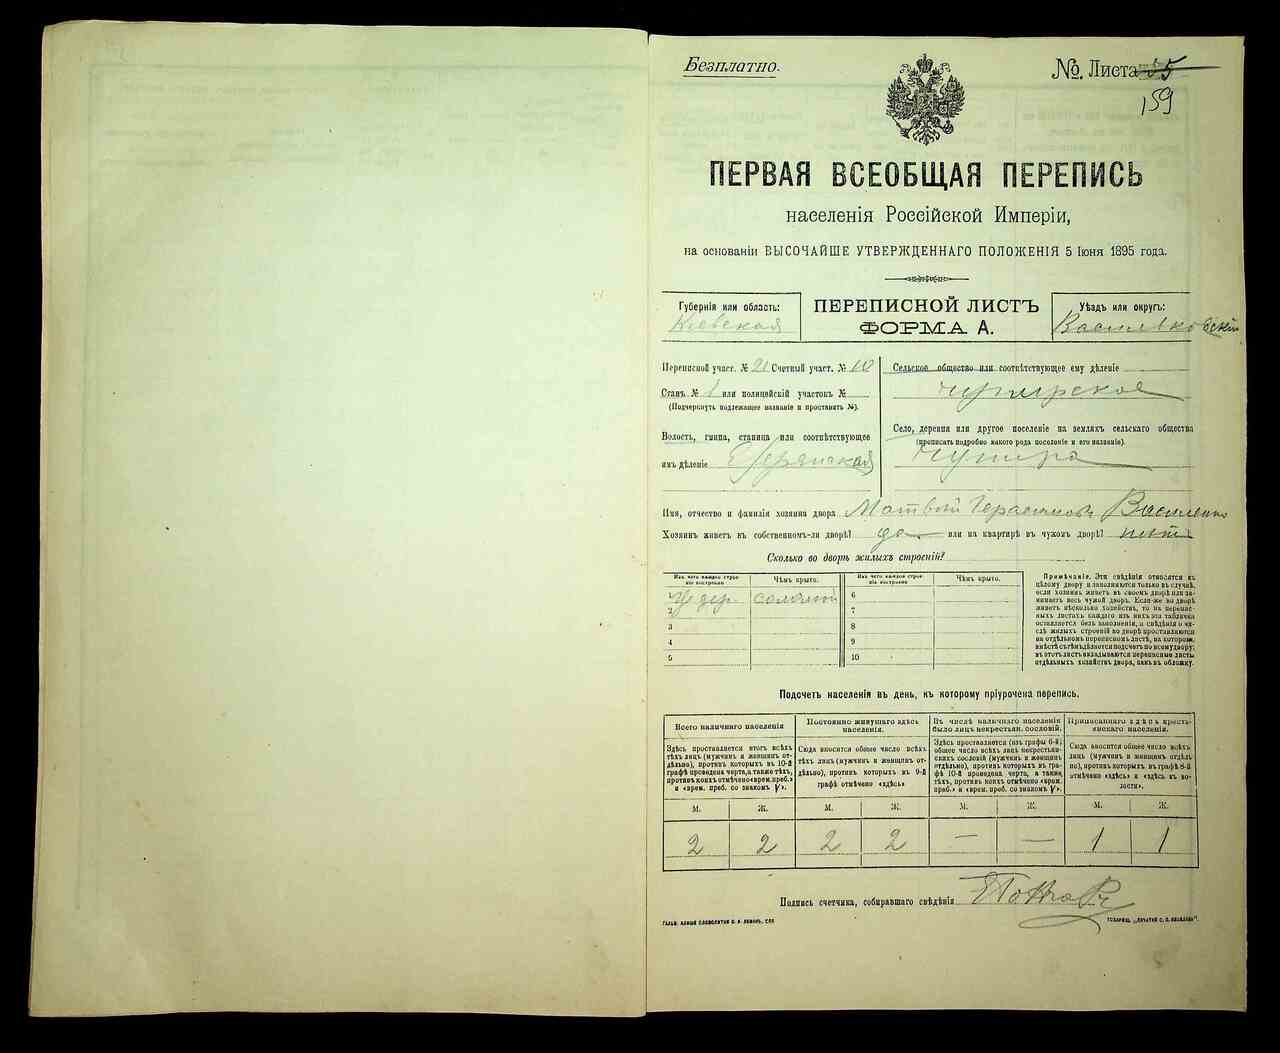 Безплатно.
№. Листа 55
159
ПЕРВАЯ ВСЕОБЩАЯ ПЕРЕПИСЬ
населенія Россійской Имперіи,
на основаніи ВЫСОЧАЙШЕ УТВЕРЖДЕННАГО ПОЛОЖЕНІЯ 5 Іюня 1895 года.
Губернія или область:
Кіевская
ПЕРЕПИСНОЙ ЛИСТЪ
ФОРМА А.
Уѣздъ или округъ:
Васильковскій
Переписной участ. № 21 Счетный участ. №
Станъ № 1 или полицейскій участокъ №
(Подчеркнуть подлежащее названіе и проставить №).
Волость, гмина, станица или соотвѣтствующее
имъ дѣленіе
Сельское общество или соотвѣтствующее ему дѣленіе
Чупирское
Село, деревня или другое поселеніе на земляхъ сельскаго общества
(прописать подробно какого рода поселеніе и его названіе).
Чупира
Имя, отчество и фамилія хозяина двора Матвій Герасимовъ Василенко
Хозяинъ живетъ въ собственномъ-ли дворѣ? да или на квартирѣ въ чужомъ дворѣ? нѣтъ
Сколько во дворѣ жилыхъ строеній?
Изъ чего каждое строеніе построено
Чѣмъ крыто.
Изъ чего каждое строеніе построено
Чѣмъ крыто.
1 дер. солом
2
3
4
5
6
7
8
9
10
Примѣчаніе. Эти свѣдѣнія относятся къ
цѣлому двору и заполняются только въ случаѣ,
если хозяинъ живетъ въ своемъ дворѣ или за-
нимаетъ весь чужой дворъ. Если-же во дворѣ
живетъ нѣсколько хозяйствъ, то на перепис-
ныхъ листахъ каждаго изъ нихъ эта табличка
оставляется безъ заполненія, а свѣдѣнія о чи-
слѣ жилыхъ строеній во дворѣ проставляются
на отдѣльномъ переписномъ листѣ, на которомъ
вмѣстѣ съ тѣмъ дѣлается подсчетъ по всему двору;
въ этотъ листъ вкладываются переписные листы
отдѣльныхъ хозяйствъ двора, какъ въ обложку.
Подсчетъ населенія въ день, къ которому пріурочена перепись.
Всего наличнаго населенія
Здѣсь проставляется итогъ всѣхъ
тѣхъ лицъ (мужчинъ и женщинъ от-
дѣльно), противъ которыхъ въ 10-й
графѣ проведена черта, а также тѣхъ,
противъ коихъ отмѣчено «врем. преб.»
и «врем. преб. со знакомъ V».
Постоянно живущаго здѣсь
населенія.
Сюда вносится общее число всѣхъ
тѣхъ лицъ (мужчинъ и женщинъ от-
дѣльно), противъ которыхъ въ 9-й
графѣ отмѣчено «здѣсь»
Въ числѣ наличнаго населенія
было лицъ некрестьян. сословій.
Здѣсь проставляется (изъ графы 6-й)
общее число всѣхъ лицъ некрестьян-
скихъ сословій (мужчинъ и женщинъ
отдѣльно), противъ которыхъ въ гра-
фѣ 10-й проведена черта, а также
тѣхъ, противъ коихъ отмѣчено «врем.
преб.» и «врем. преб. со знакомъ V».
Приписаннаго здѣсь кресть-
янскаго населенія.
Сюда вносится общее число всѣхъ
лицъ (мужчинъ и женщинъ отдѣль-
но), противъ которыхъ въ графѣ 8-й
отмѣчено «здѣсь» и «здѣсь въ во-
лости».
М. Ж. М. Ж. М. Ж. М. Ж.
2 2 2 2 — — 1 1
Подпись счетчика, собиравшаго свѣдѣнія